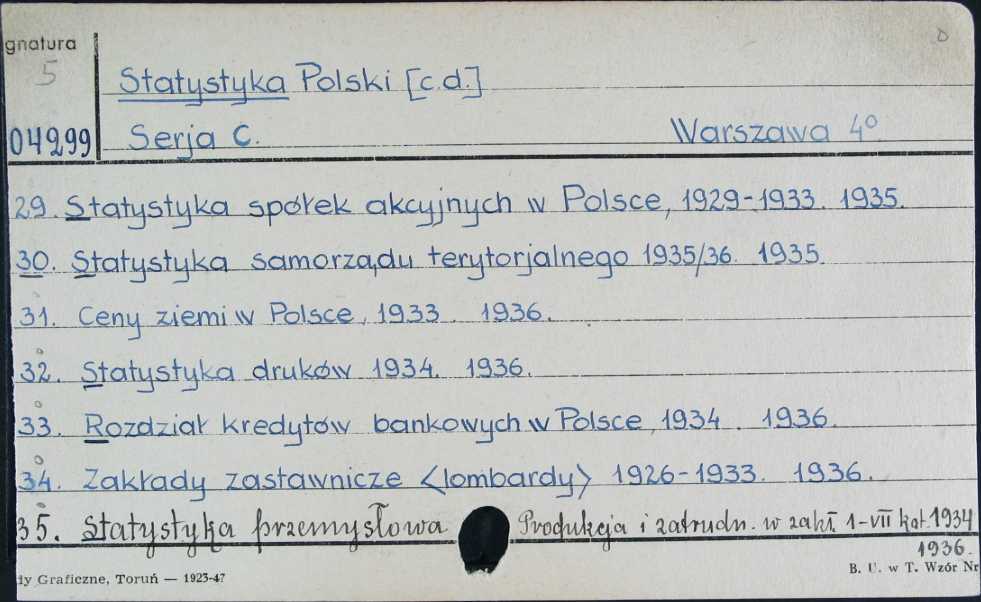 gnatura D
5 Statystyka Polski [c.d.]
04299 Serja C. Warszawa 4°
29. Statystyka spółek akcyjnych w Polsce, 1929-1933. 1935.
30. Statystyka samorządu terytorjalnego 1935/36. 1935.
31. Ceny ziemi w Polsce, 1933. 1936.
32. Statystyka druków 1934. 1936.
33. Rozdział kredytów bankowych w Polsce, 1934. 1936.
34. Zakłady zastawnicze <lombardy> 1926-1933. 1936.
35. Statystyka przemysłowa. Produkcja i zatrudn. w zakł. I-VII kat. 1934
1936.
dy Graficzne, Toruń — 1923-47 B. U. w T. Wzór Nr